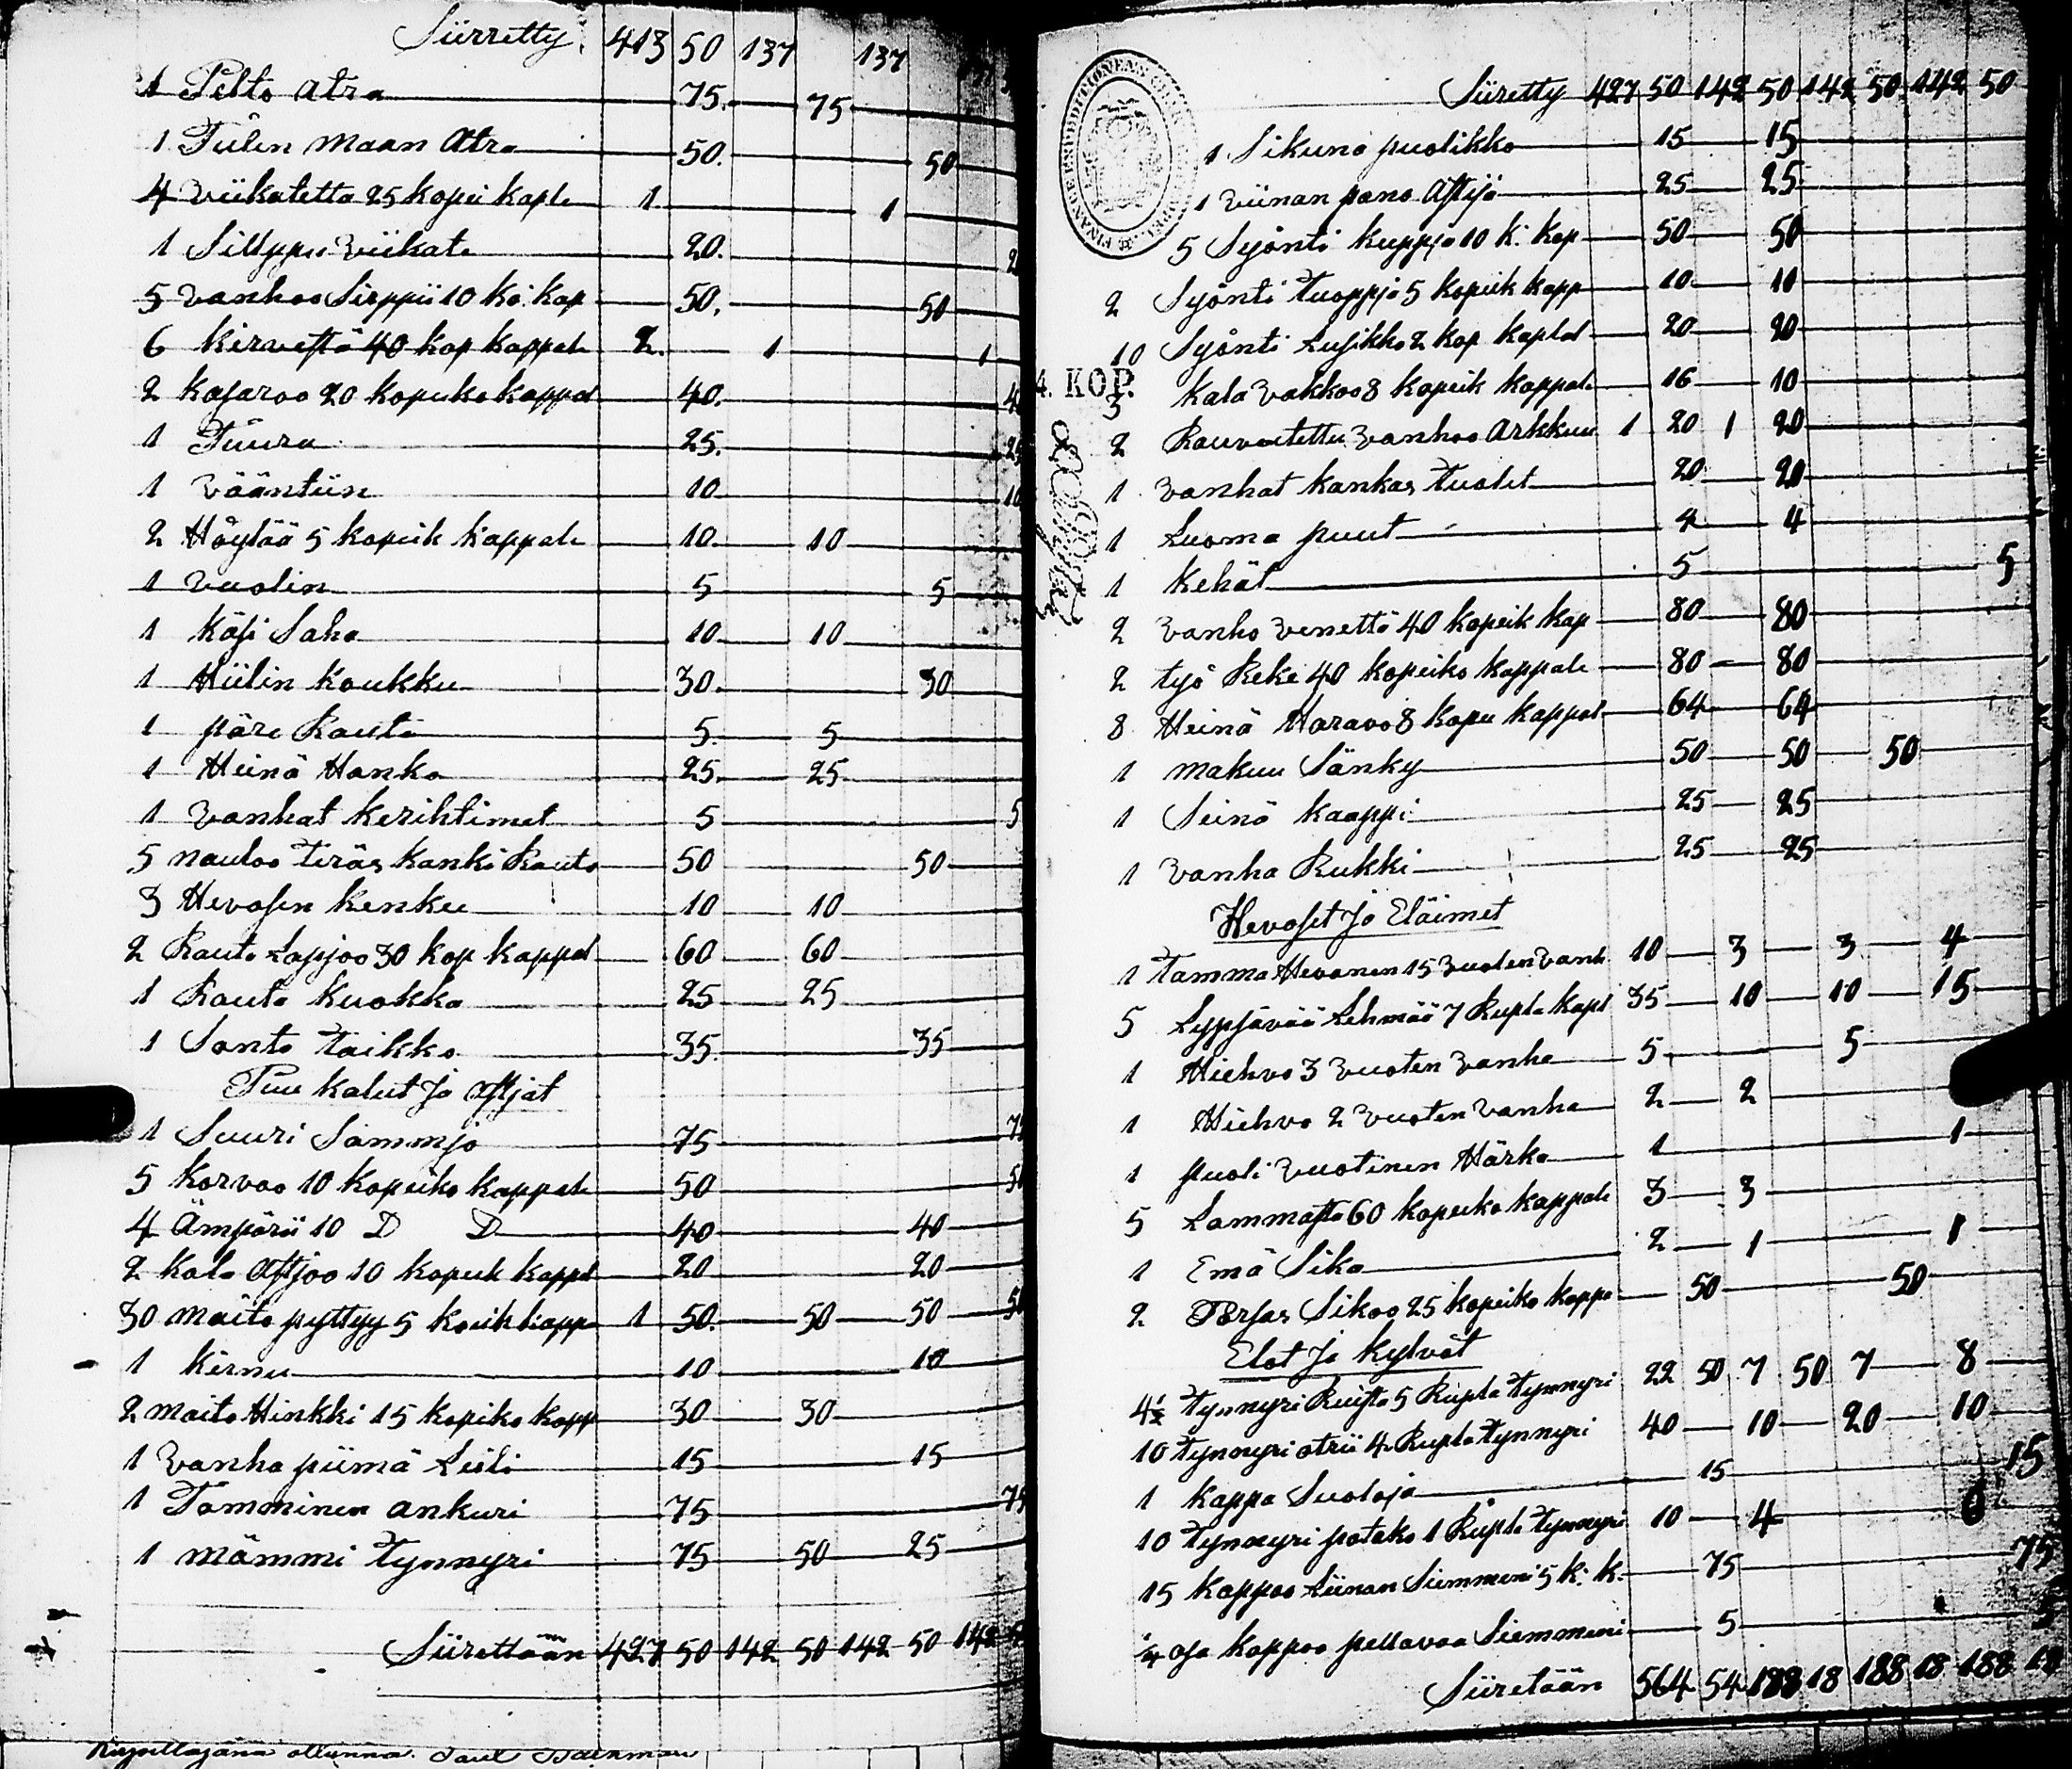 Siirretty 413 50 137 137
1 Pelto atra 75. 75
1 Tulen maan Atra 50. 50
4 viikatetta 25 kopei kaple 1 1
1 Silppu viikate 20. 2
5 vanhoo Sirppii 10 ko. kap 50. 50
6 kirvestä 40 kop kappale 2. 1 1
2 kasaroo 20 kopeko kappal 40. 4
1 Tuura 25. 25
1 vääntiin 10 10
2 Höylää 5 kopeik kappale 10. 10
1 vuolin 5 5
1 käsi Saha 10. 10
1 Hiilin koukku 30. 30
1 päre Rauta 5. 5
1 Heinä Hanko 25. 25
1 vanhat kerihtimet 5 5
5 naulaa teräs kanki Rauta 50 50
3 Hevosen kenkee 10 10
2 Rauta Lapjoo 30 kop kappal 60 60
1 Rauta kuokka 25 25
1 Santa taikko 35. 35
Puu kalut ja astjat
1 Suuri Sammjo 75 75
5 korvoo 10 kopeiko kappale 50 50
4 Ämpärii 10 D D 40 40
2 kala astjoo 10 kopeik kappal 20 20
30 maito pyttyy 5 kopeik kapp 1 50. 50 50 50
1 kirnu 10 10
2 maito Hinkki 15 kopiko kapp 30 30
1 vanha piimä Leili 15 15
1 Tamminen ankuri 75 75
1 mämmi tynnyri 75 50 25
Siirettään 427 50 142 50 142 50 142
kirjoittajana ollunna. Paul
Siiretty 427 50 142 50 142 50 142 50
1 Sikuna puolikko 15 15
1 viinan pano Astija 25 25
5 Syönti kuppja 10 k. kap 50 50
2 Syönti tuoppja 5 kopeik kapp 10 10
10 Syönti Lusikko 2 kop kaplal 20 20
4. KOP.
3 kala vakkoo 8 kopeik kappale 16 10
2 Rauvoitettu vanhoo Arkkuu 1 20 1 20
1 vanhat kankas tuolet 20 20
1 Luoma puut 4 4
1 kehät 5 5
2 vanho venettä 40 kopeik kap 80 80
2 työ Reke 40 kopeiko kappale 80 80
8 Heinä Haravo 8 kopee kappal 64 64
1 makuu Sänky 50 50 50
1 Seinä kaappi 25 25
1 vanha Rukki 25 25
Hevoset ja Eläimet
1 tamma Hevonen 15 vuoten vanh 10 3 3 4
5 Lypsävää Lehmää 7 Rupla kapl 35 10 10 15
1 Hiehvo 3 vuoten vanha 5 5
1 Hiehvo 2 vuoten vanha 2 2
1 puoli vuotinen Härkä 1 1
5 Lammasta 60 kopeiko kappale 3 3
1 Emä Sika 2 1 1
2 Porsas Sikoo 25 kopeiko kappa 50 50
Elot ja kylvöt
4½ tynnyri Ruista 5 Rupla tynnyri 22 50 7 50 7 8
10 tynnyri otrii 4 Rupla tynnyri 40 10 20 10
1 kappa Suoloja 15 15
10 tynnyri potako 1 Rupla tynnyri 10 4 6
15 kappoo Liinan Siemmeni 5 k. k. 75 75
¼ osa kappoo pellavoa Siemmeni 5 5
Siiretään 564 54 188 18 188 18 188 18